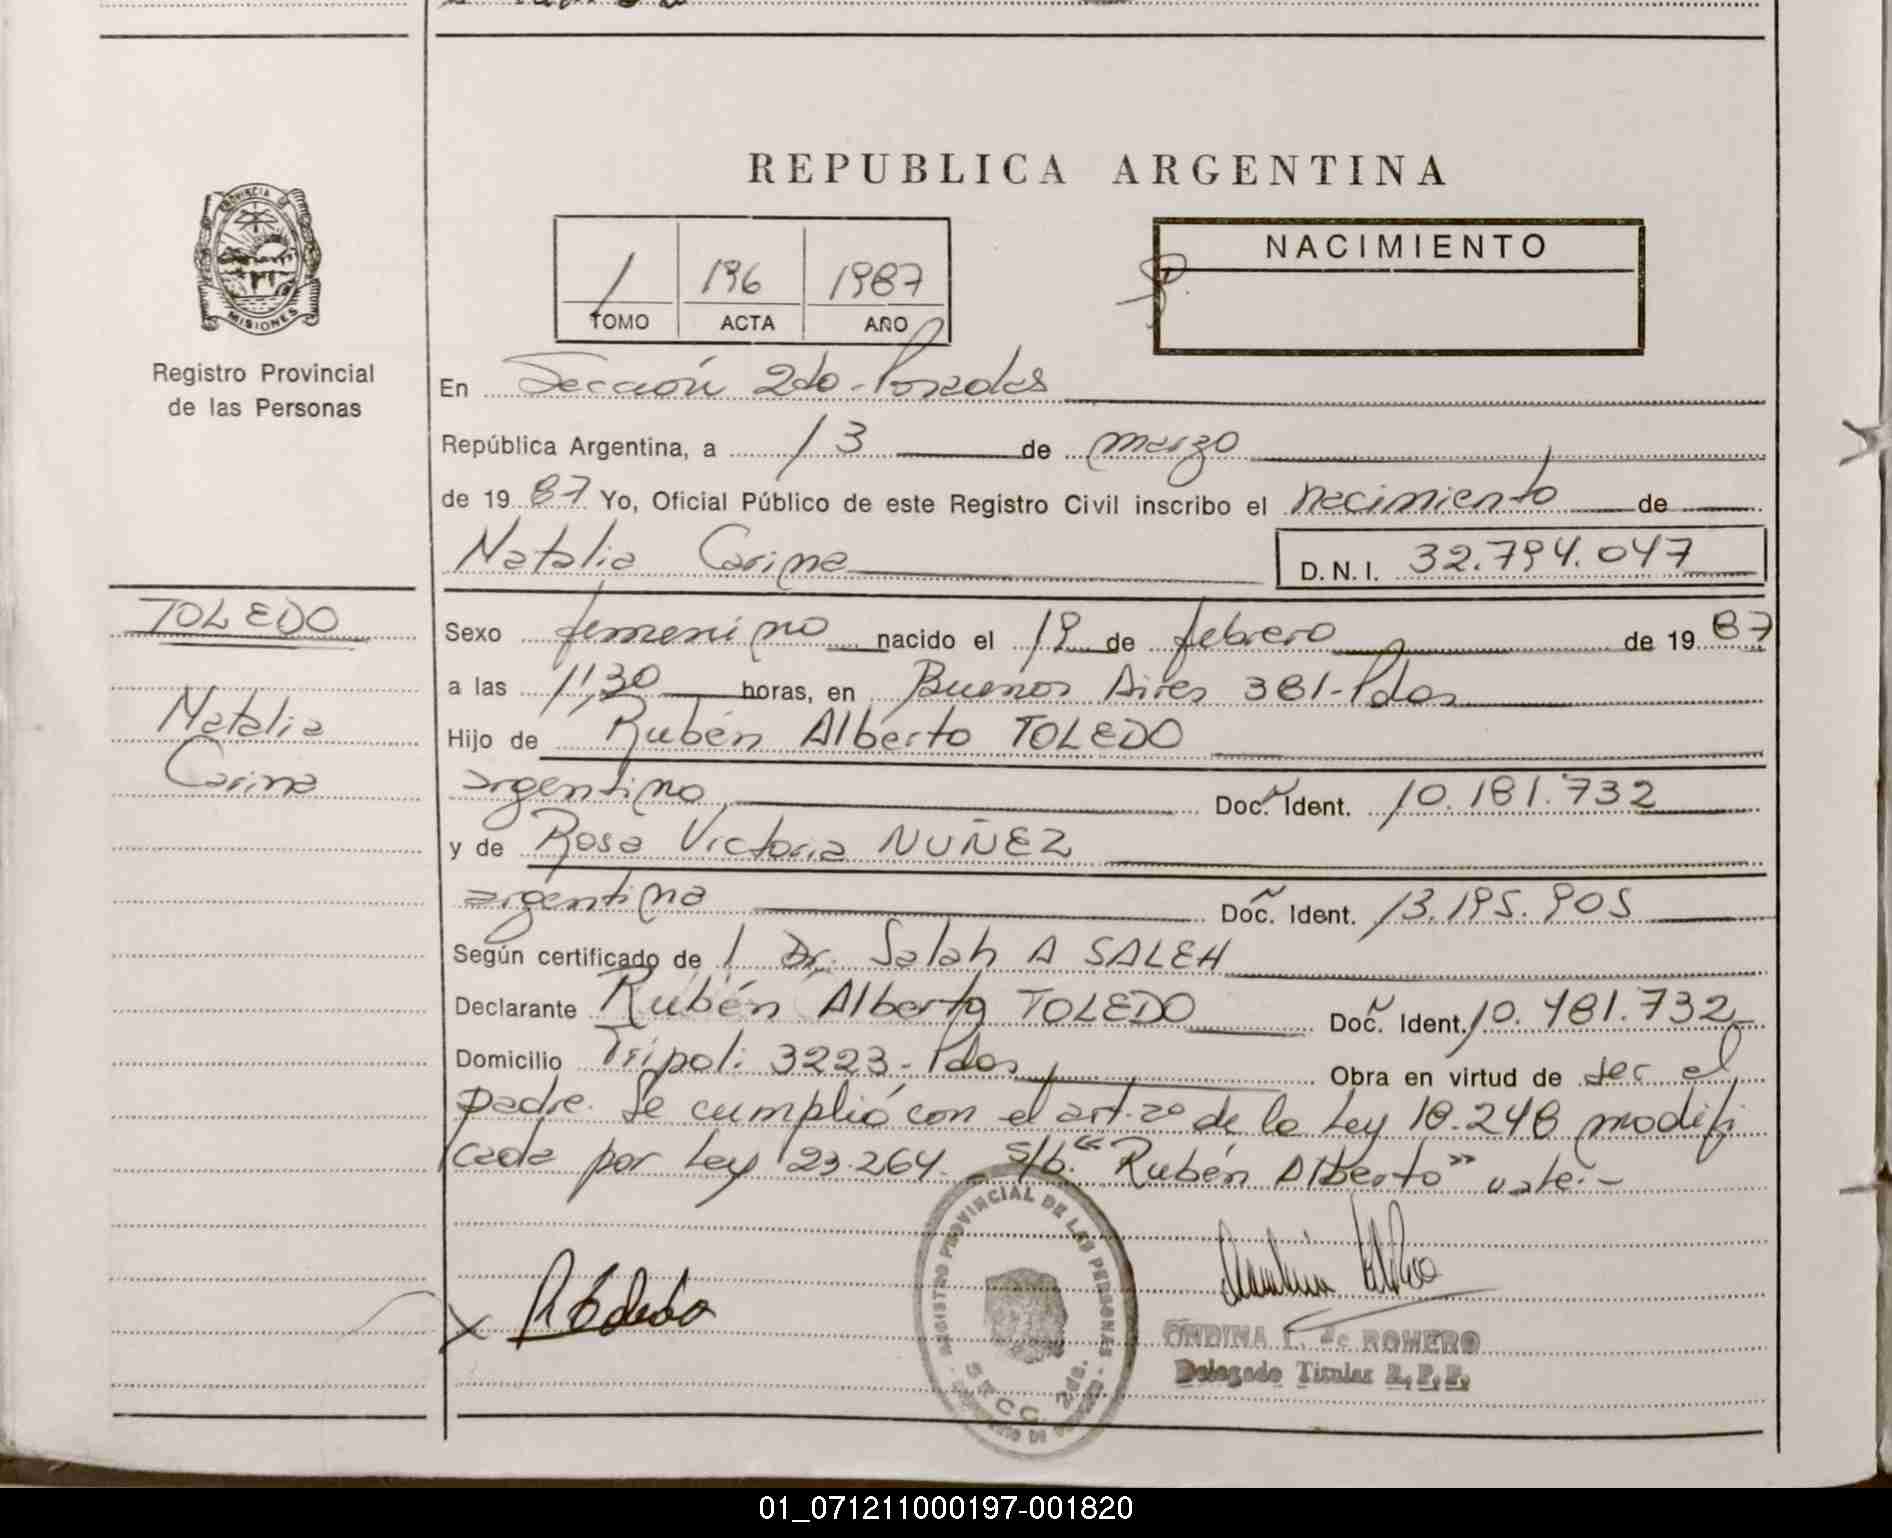 REPUBLICA ARGENTINA
PROVINCIA
MISIONES
Registro Provincial
de las Personas
1 196 1987
TOMO ACTA AÑO
NACIMIENTO
En Sección 2da - Posadas
República Argentina, a 13 de marzo
de 1987 Yo, Oficial Público de este Registro Civil inscribo el nacimiento de
Natalia Carina D.N.I. 32.794.047
TOLEDO
Natalia
Carina
Sexo femenino nacido el 19 de febrero de 1987
a las 11,30 horas, en Buenos Aires 381 - Pdas
Hijo de Rubén Alberto TOLEDO
argentino Doc. Ident. 10.181.732
y de Rosa Victoria NUÑEZ
argentina Doc. Ident. 13.195.905
Según certificado de 1 Dr. Salah A SALEH
Declarante Rubén Alberto TOLEDO Doc. Ident. 10.181.732
Domicilio Tripoli 3223 - Pdas Obra en virtud de ser el
padre. Se cumplió con el art. 2º de la Ley 18.248 modifi
cada por Ley 23.264. s/b. "Rubén Alberto" vale.-
REGISTRO PROVINCIAL DE LAS PERSONAS
SECC. 2da.
ONDINA de ROMERO
Delegado Titular R.P.P.
01_071211000197-001820